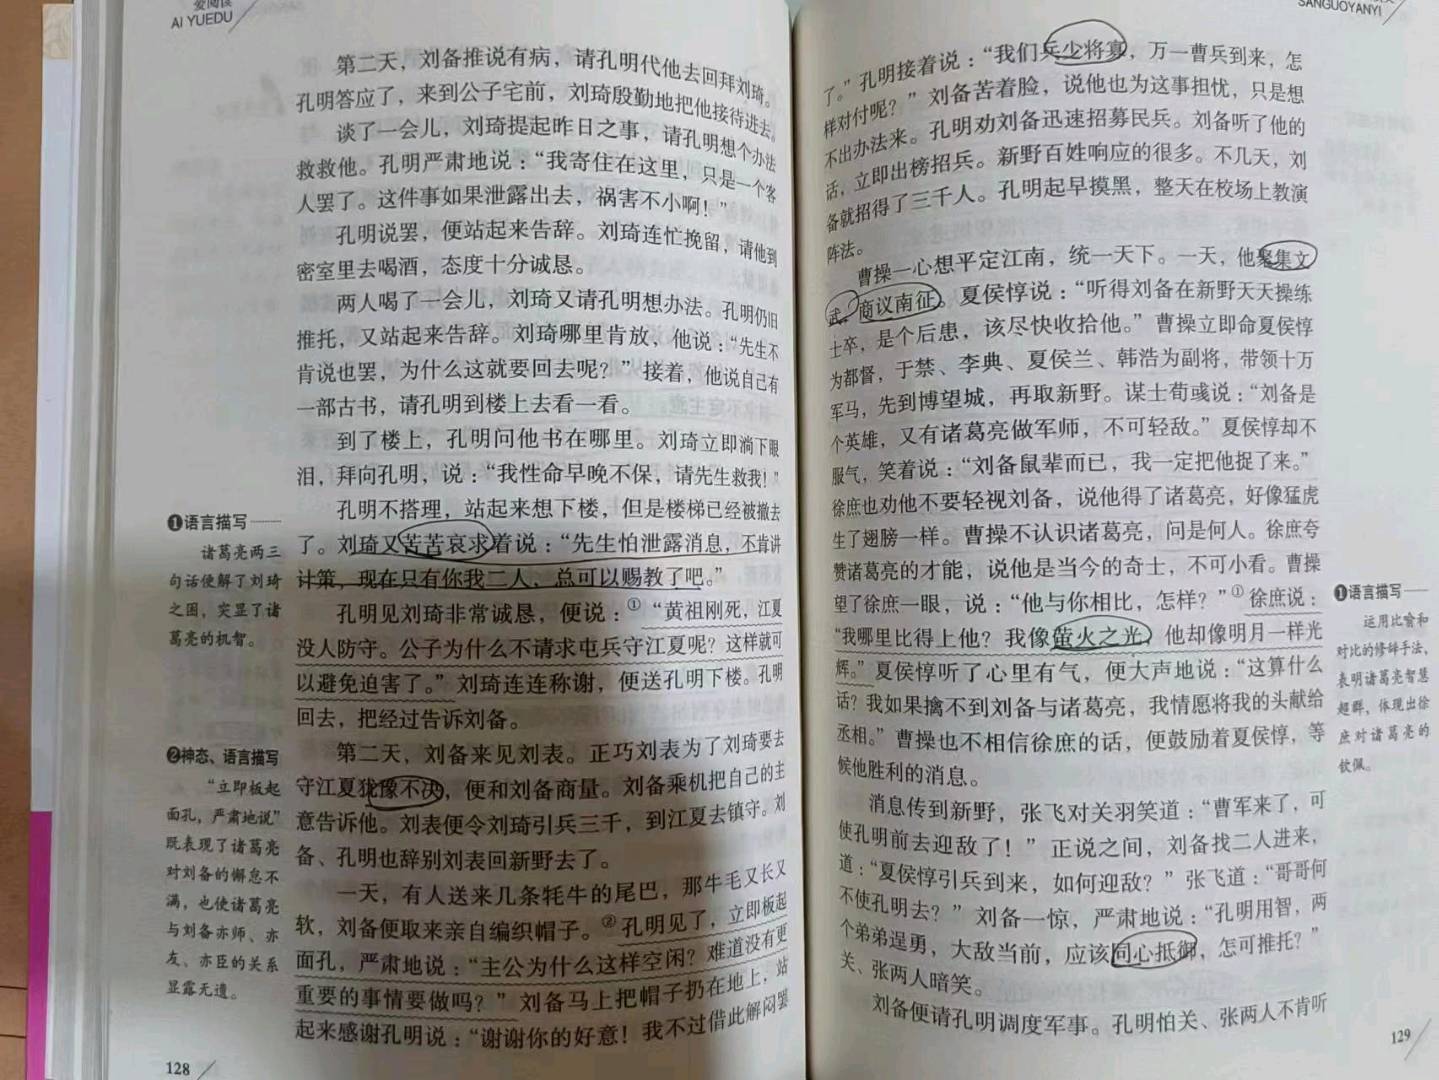 爱阅读
AI YUEDU
第二天，刘备推说有病，请孔明代他去回拜刘琦。
孔明答应了，来到公子宅前，刘琦殷勤地把他接待进去。
谈了一会儿，刘琦提起昨日之事，请孔明想个办法
救救他。孔明严肃地说：“我寄住在这里，只是一个客
人罢了。这件事如果泄露出去，祸害不小啊！”
孔明说罢，便站起来告辞。刘琦连忙挽留，请他到
密室里去喝酒，态度十分诚恳。
两人喝了一会儿，刘琦又请孔明想办法。孔明仍旧
推托，又站起来告辞。刘琦哪里肯放，他说：“先生不
肯说也罢，为什么这就要回去呢？”接着，他说自己有
一部古书，请孔明到楼上去看一看。
到了楼上，孔明问他书在哪里。刘琦立即淌下眼
泪，拜向孔明，说：“我性命早晚不保，请先生救我！”
孔明不搭理，站起来想下楼，但是楼梯已经被撤去
了。刘琦又苦苦哀求着说：“先生怕泄露消息，不肯讲
计策，现在只有你我二人，总可以赐教了吧。”
孔明见刘琦非常诚恳，便说：①“黄祖刚死，江夏
没人防守。公子为什么不请求屯兵守江夏呢？这样就可
以避免迫害了。”刘琦连连称谢，便送孔明下楼。孔明
回去，把经过告诉刘备。
第二天，刘备来见刘表。正巧刘表为了刘琦要去
守江夏犹豫不决，便和刘备商量。刘备乘机把自己的主
意告诉他。刘表便令刘琦引兵三千，到江夏去镇守。刘
备、孔明也辞别刘表回新野去了。
一天，有人送来几条牦牛的尾巴，那牛毛又长又
软，刘备便取来亲自编织帽子。②孔明见了，立即板起
面孔，严肃地说：“主公为什么这样空闲？难道没有更
重要的事情要做吗？”刘备马上把帽子扔在地上，站
起来感谢孔明说：“谢谢你的好意！我不过借此解闷罢
❶语言描写
诸葛亮两三
句话便解了刘琦
之困，突显了诸
葛亮的机智。
❷神态、语言描写
“立即板起
面孔，严肃地说”
既表现了诸葛亮
对刘备的懈怠不
满，也使诸葛亮
与刘备亦师、亦
友、亦臣的关系
显露无遗。
128
SANGUOYANYI
了。”孔明接着说：“我们兵少将寡，万一曹兵到来，怎
样对付呢？”刘备苦着脸，说他也为这事担忧，只是想
不出办法来。孔明劝刘备迅速招募民兵。刘备听了他的
话，立即出榜招兵。新野百姓响应的很多。不几天，刘
备就招得了三千人。孔明起早摸黑，整天在校场上教演
阵法。
曹操一心想平定江南，统一天下。一天，他聚集文
武，商议南征。夏侯惇说：“听得刘备在新野天天操练
士卒，是个后患，该尽快收拾他。”曹操立即命夏侯惇
为都督，于禁、李典、夏侯兰、韩浩为副将，带领十万
军马，先到博望城，再取新野。谋士荀彧说：“刘备是
个英雄，又有诸葛亮做军师，不可轻敌。”夏侯惇却不
服气，笑着说：“刘备鼠辈而已，我一定把他捉了来。”
徐庶也劝他不要轻视刘备，说他得了诸葛亮，好像猛虎
生了翅膀一样。曹操不认识诸葛亮，问是何人。徐庶夸
赞诸葛亮的才能，说他是当今的奇士，不可小看。曹操
望了徐庶一眼，说：“他与你相比，怎样？”①徐庶说：
“我哪里比得上他？我像萤火之光，他却像明月一样光
辉。”夏侯惇听了心里有气，便大声地说：“这算什么
话？我如果擒不到刘备与诸葛亮，我情愿将我的头献给
丞相。”曹操也不相信徐庶的话，便鼓励着夏侯惇，等
候他胜利的消息。
消息传到新野，张飞对关羽笑道：“曹军来了，可
使孔明前去迎敌了！”正说之间，刘备找二人进来，
道：“夏侯惇引兵到来，如何迎敌？”张飞道：“哥哥何
不使孔明去？”刘备一惊，严肃地说：“孔明用智，两
个弟弟逞勇，大敌当前，应该同心抵御，怎可推托？”
关、张两人暗笑。
刘备便请孔明调度军事。孔明怕关、张两人不肯听
❶语言描写
运用比喻和
对比的修辞手法，
表明诸葛亮智慧
超群，体现出徐
庶对诸葛亮的
钦佩。
129